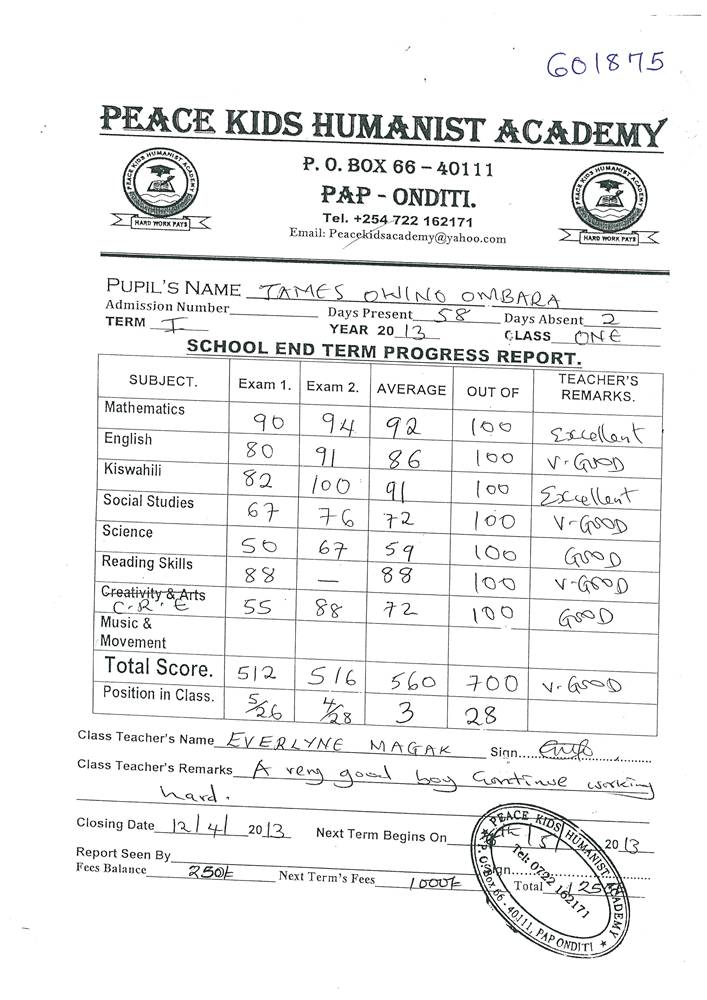 601875
PEACE KIDS HUMANIST ACADEMY
P. O. BOX 66 – 40111
PAP - ONDITI.
Tel. +254 722 162171
Email: Peacekidsacademy@yahoo.com
PEACE KIDS HUMANIST ACADEMY
HARD WORK PAYS
PEACE KIDS HUMANIST ACADEMY
HARD WORK PAYS
PUPIL'S NAME JAMES OWINO OMBARA
Admission Number Days Present 58 Days Absent 2
TERM I YEAR 2013 CLASS ONE
SCHOOL END TERM PROGRESS REPORT.
SUBJECT. Exam 1. Exam 2. AVERAGE OUT OF TEACHER'S REMARKS.
Mathematics 90 94 92 100 Excellent
English 80 91 86 100 V-GOOD
Kiswahili 82 100 91 100 Excellent
Social Studies 67 76 72 100 V-GOOD
Science 50 67 59 100 GOOD
Reading Skills 88 — 88 100 V-GOOD
Creativity & Arts
C.R.E 55 88 72 100 GOOD
Music &
Movement
Total Score. 512 516 560 700 V-GOOD
Position in Class. 5/26 4/28 3 28
Class Teacher's Name EVERLYNE MAGAK Sign
Class Teacher's Remarks A very good boy Continue working
hard.
Closing Date 12/4/ 2013 Next Term Begins On /5/ 2013
Report Seen By Sign
Fees Balance 250/= Next Term's Fees 1000/= Total 1250
PEACE KIDS HUMANIST ACADEMY
Tel: 0722 162171
P. O. Box 66 - 40111, PAP ONDITI